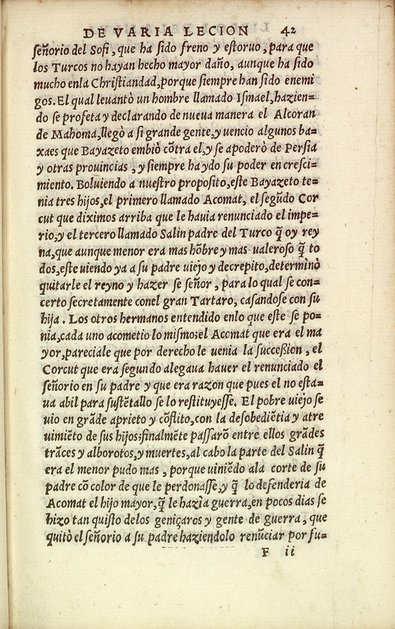 DE VARIA LECION 42
señorio del Sofi, que ha sido freno y estoruo, para que
los Turcos no hayan hecho mayor daño, aunque ha sido
mucho enla Christiandad, porque siempre han sido enemi
gos. El qual leuantò un hombre llamado Ismael, hazien-
do se profeta y declarando de nueva manera el Alcoran
de Mahoma, llegò a si grande gente, y uencio algunos ba-
xaes que Bayazeto embiò cõtra el, y se apoderò de Persia
y otras prouincias, y siempre haydo su poder en cresci-
miento. Boluiendo a nuestro proposito, este Bayazeto te-
nia tres hijos, el primero llamado Acomat, el segũdo Cor
cut que diximos arriba que le hauia renunciado el impe-
rio, y el tercero llamado Salin padre del Turco q̃ oy rey
na, que aunque menor era mas hõbre y mas valeroso q̃ to
dos, este uiendo ya a su padre viejo y decrepito, determinò
quitarle el reyno y hazer se señor, para lo qual se con-
certo secretamente conel gran Tartaro, casandose con su
hija. Los otros hermanos entendido enlo que este se po-
nia, cada uno acometio lo mismo: el Acomat que era el ma
yor, pareciale que por derecho le uenia la succeßion, el
Corcut que era segundo alegaua hauer el renunciado el
señorio en su padre y que era razon que pues el no esta-
ua abil para sustẽtallo se lo restituyesse. El pobre viejo se
uio en grãde aprieto y cõflito, con la desobediẽtia y atre
uimiẽto de sus hijos: finalmẽte passarõ entre ellos grãdes
trãces y alborotos, y muertes, al cabo la parte del Salin q̃
era el menor pudo mas, porque uiniẽdo ala corte de su
padre cõ color de que le perdonasse, y q̃ lo defenderia de
Acomat el hijo mayor, q̃ le hazia guerra, en pocos dias se
hizo tan quisto delos geniçaros y gente de guerra, que
quitò el señorio a su padre haziendolo renũciar por fu-
F ii